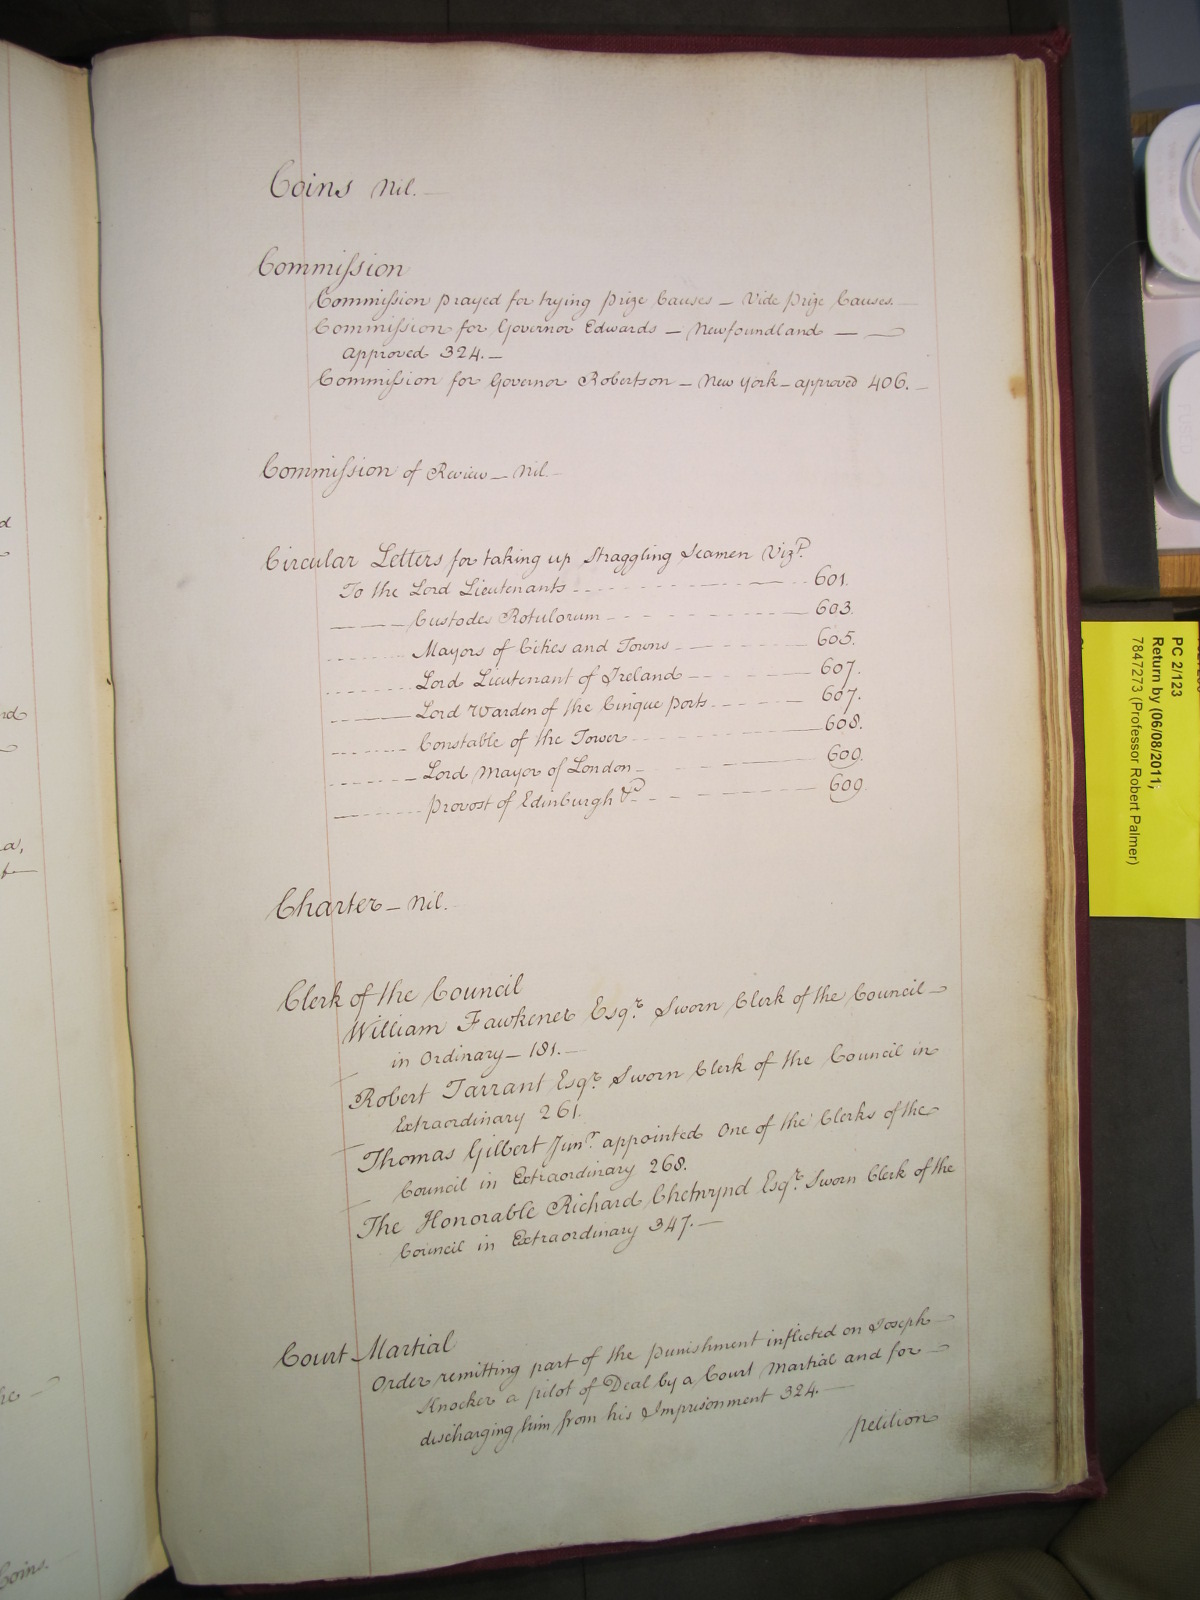 Coins Nil.
Commission
Commission prayed for trying Prize Causes — Vide Prize Causes.
Commission for Governor Edwards — Newfoundland —
approved 324.—
Commission for Governor Robertson — New York — approved 406.
Commission of Review — Nil.
Circular Letters for taking up Straggling Seamen Vizt.
To the Lord Lieutenants 601.
Custodes Rotulorum 603.
Mayors of Cities and Towns 605.
Lord Lieutenant of Ireland 607.
Lord Warden of the Cinque Ports 607.
Constable of the Tower 608.
Lord Mayor of London 609.
Provost of Edinburgh &c 609.
Charter — Nil.
Clerk of the Council
William Fawkener Esqr. Sworn Clerk of the Council
in Ordinary — 181.—
Robert Tarrant Esqr. Sworn Clerk of the Council in
Extraordinary 261.
Thomas Gilbert Junr. appointed One of the Clerks of the
Council in Extraordinary 268.
The Honorable Richard Chetwynd Esqr. Sworn Clerk of the
Council in Extraordinary 347.—
Court Martial
Order remitting part of the Punishment inflicted on Joseph
Knocker a pilot of Deal by a Court Martial and for
discharging him from his Imprisonment 324.—
Petition
Coins.
PC 2/123
Return by (06/08/2011;
7847273 (Professor Robert Palmer)